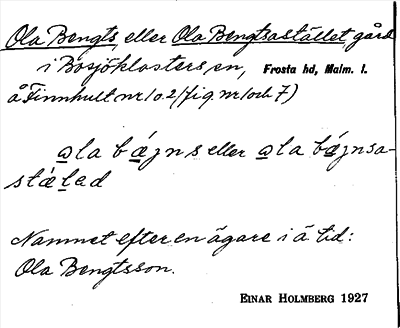 Ola Bengts, eller Ola Bengtsastället, gård
i Bosjöklosters sn, Frosta hd, Malm. l.
å Finnhult nr 1 o. 2
ala bæjns eller ala bæjnsa-
stæled
Namnet efter en ägare i ä. tid:
Ola Bengtsson.
EINAR HOLMBERG 1927